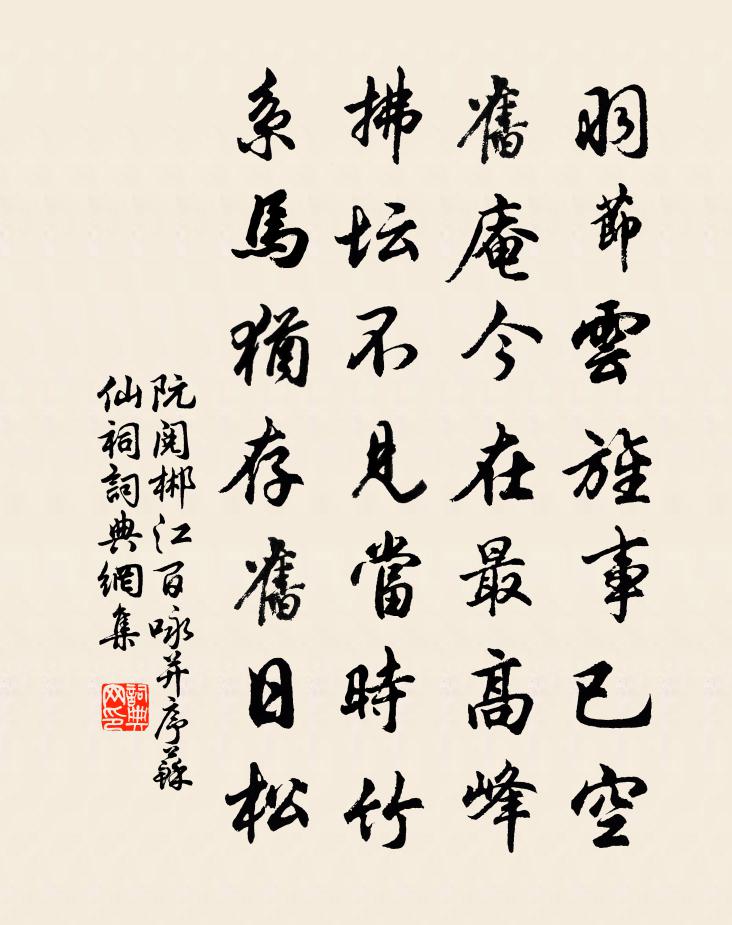 羽節雲旌事已空
舊庵今在最高峰
拂坛不見當時竹
系馬猶存舊日松
阮閱郴江百咏并序蘇
仙祠詞典網集
詞典
网印